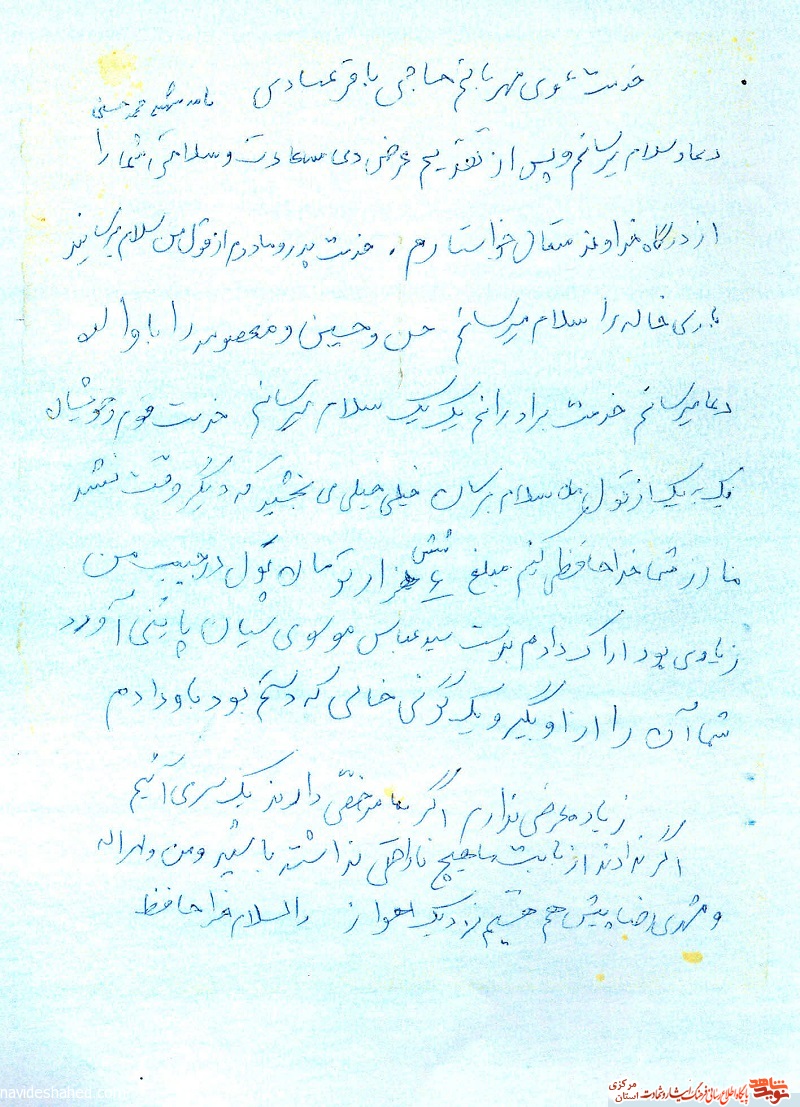 خدمت عموی مهربانم حاجی باقر عبادی
نامه شهید محمد حسنی
دعا و سلام میرسانم و پس از تقدیم عرض دعا سعادت و سلامتی شما را
از درگاه خداوند متعال خواستارم . خدمت پدر و مادرم از قول من سلام برسانید
باری خاله را سلام میرسانم حسن و حسین و معصومه را با
دعا میرسانم خدمت برادرانم یک یک سلام میرسانم خدمت قوم و خویشان
یک یک از قول من سلام برسان خیلی خیلی می بخشید که دیگر وقت نشد
ما از شما خداحافظی کنیم مبلغ ۶ شش هزار تومان پول در جیب من
زیادی بود اراک دادم بدست سید عباس موسوی سیان پائینی آورد
شما آن را از او بگیر و یک گونی خالی که دستم بود باو دادم
زیاده عرضی ندارم اگر بما مرخصی دادند یک سری آئیم
اگر ندادند از بابت ما هیچ ناراحتی نداشته باشید و من و
و مهدی رضا پیش هم هستیم نزدیک اهواز والسلام خداحافظ
navideshahed.com
نوید شاهد
پایگاه اطلاع رسانی فرهنگ ایثار و شهادت استان مرکزی